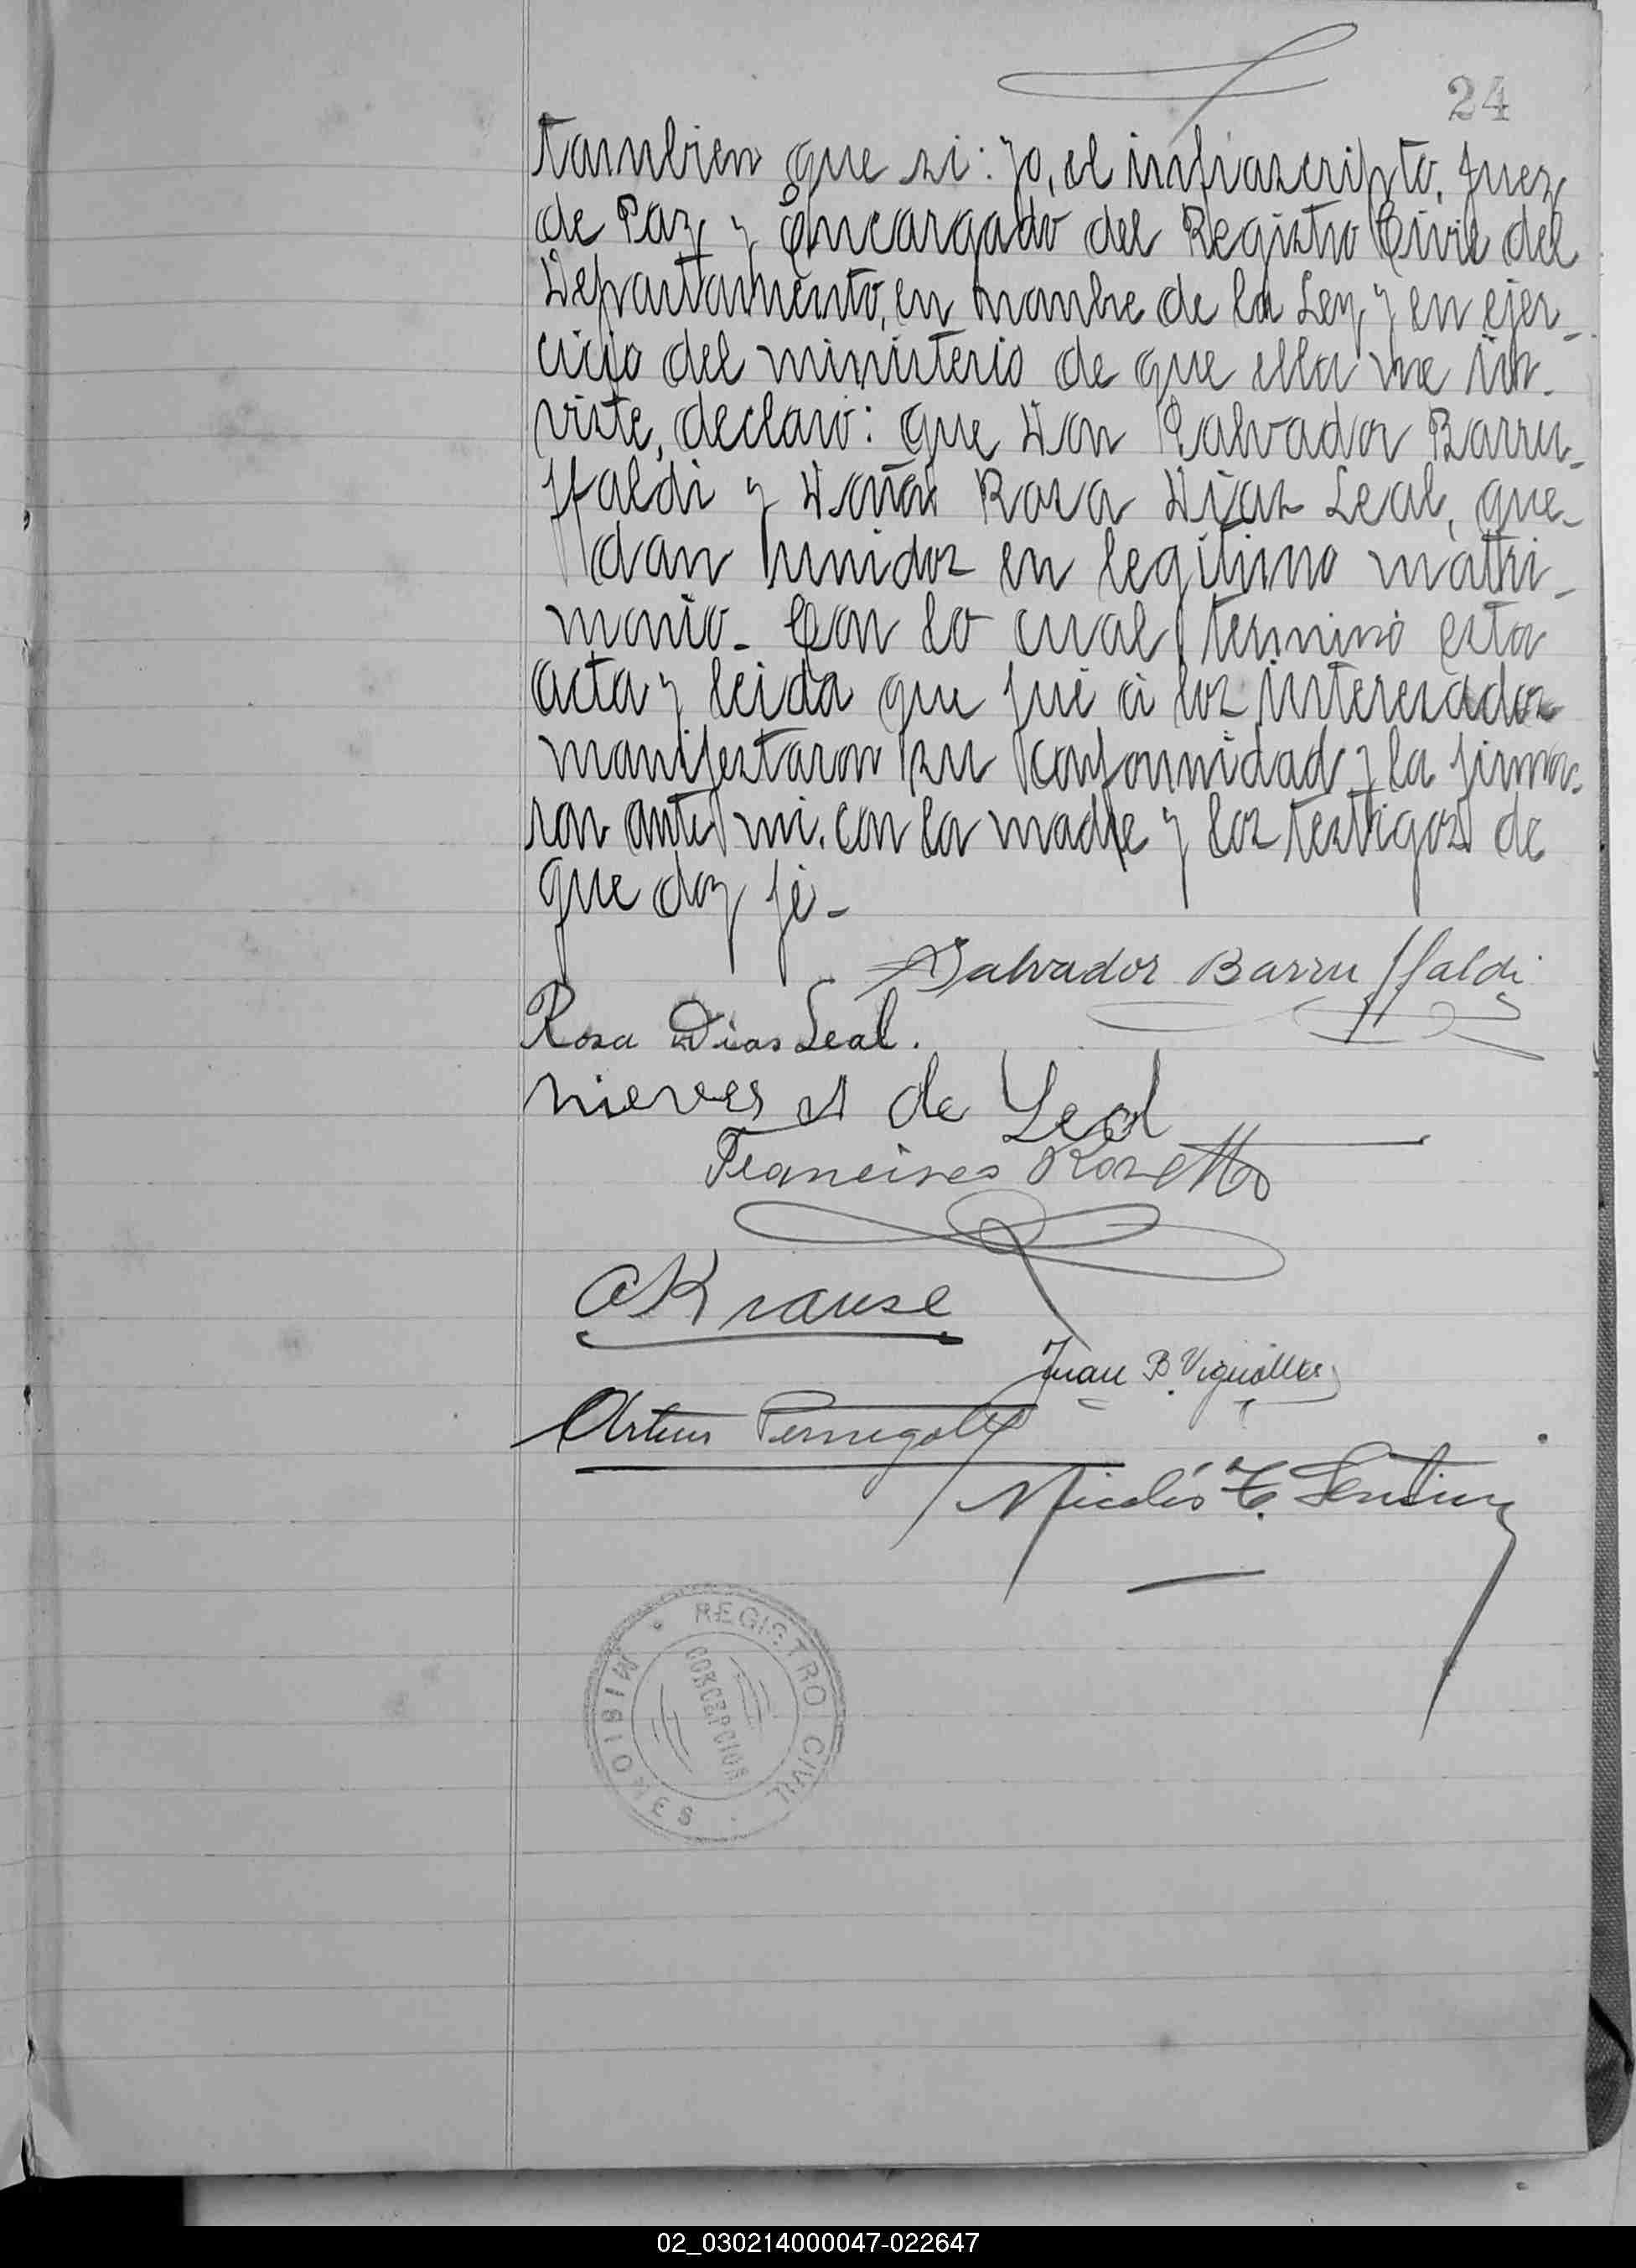 24
tambien que si: yo, el infrascripto, Juez
de Paz y Encargado del Registro Civil del
Departamento, en nombre de la Ley y en ejer-
cicio del ministerio de que ella me in-
viste, declaro: que Don Salvador Barru-
ffaldi y Doña Rosa Diaz Leal, que-
dan unidos en legítimo matri-
monio. Con lo cual terminó esta
acta y leida que fué á los interesados
manifestaron su conformidad y la firma-
ron ante mi, con la madre y los testigos de
que doy fé-
Salvador Barruffaldi
Rosa Dias Leal.
nieves A de Leal
Francisco Rosetto
A Krause
Juan B. Vignolles
Arturo
Nicolás
REGISTRO CIVIL
CONCEPCION
MISIONES
02_030214000047-022647